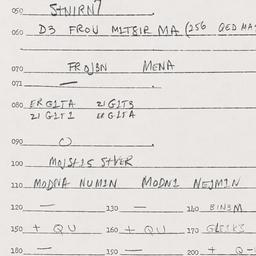 050 STNIRN7
060 D3 FROU MITSIR MA (256 QED MA
070 FROJBN MENA
071 —
080 ER GITA 21 GITS
21 GIT1 ER GITA
090 O
100 MOJSTIS STVER
110 MODNA NUMIN MODNI NEJMIN
120 — 130 — 140 BINEM
150 + QU 160 + QU 170
180 — 190 — 200 + Q-